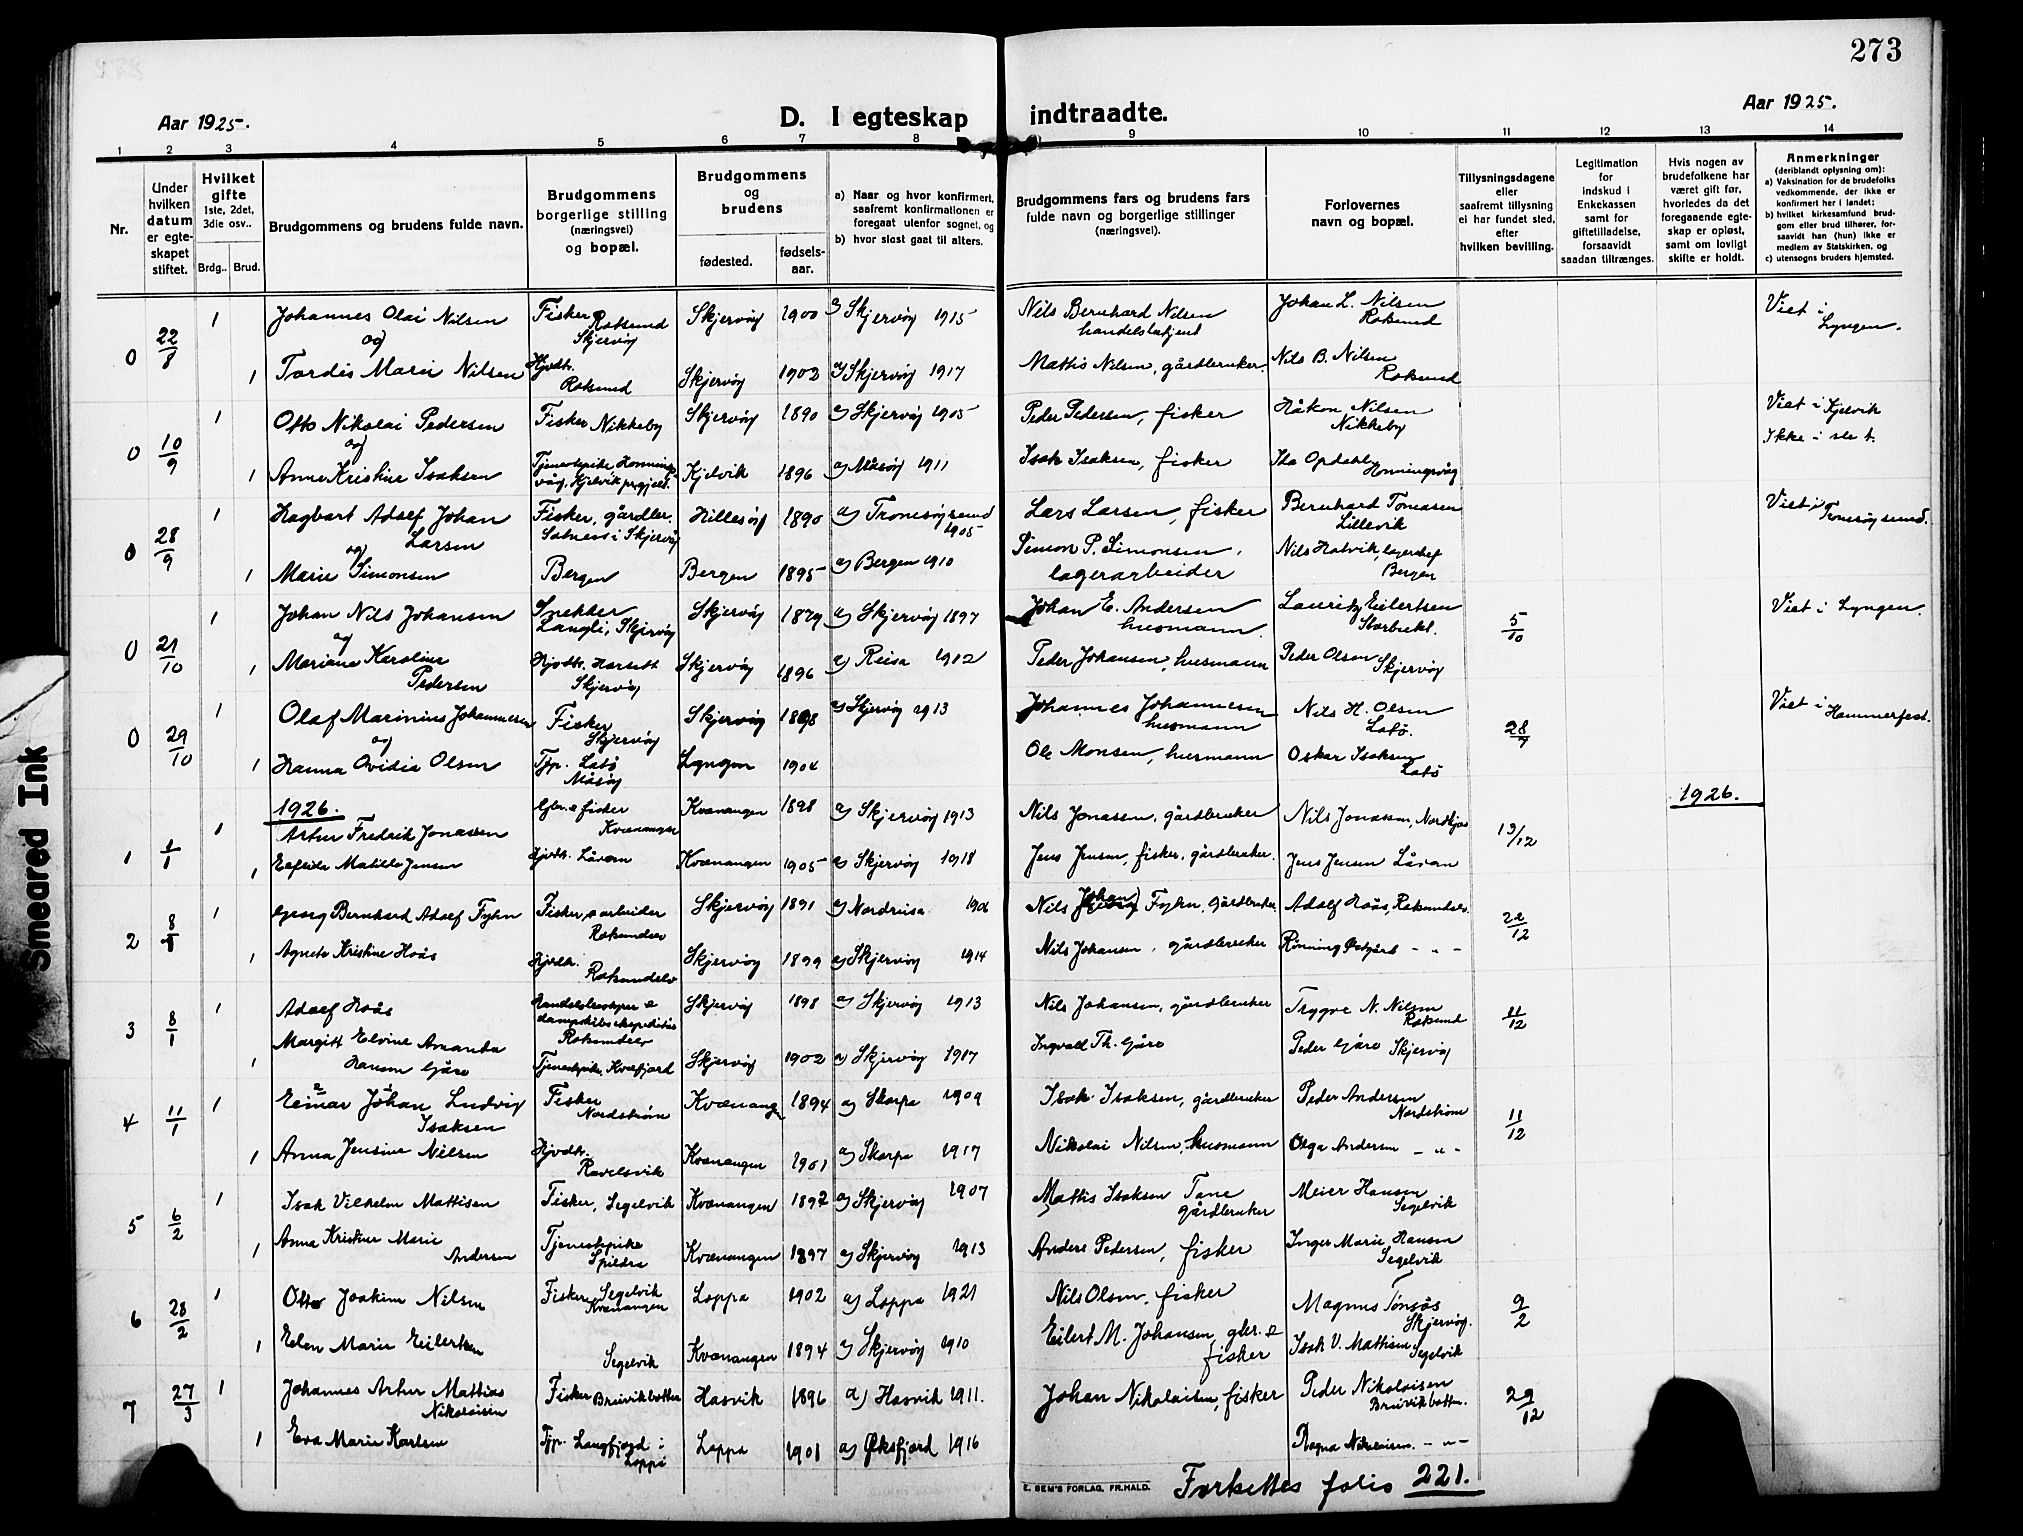 273
Aar 1925.
D. I egteskap indtraadte.
Aar 1925.
1 2 3 4 5 6 7 8 9 10 11 12 13 14
Nr.
Under hvilken datum er egteskapet stiftet.
Hvilket gifte
1ste, 2det, 3die osv..
Brdg.. Brud.
Brudgommens og brudens fulde navn.
Brudgommens borgerlige stilling (næringsvei) og bopæl.
Brudgommens og brudens
fødested.
fødselsaar.
a) Naar og hvor konfirmert, saafremt konfirmationen er foregaat utenfor sognet, og
b) hvor sidst gaat til alters.
Brudgommens fars og brudens fars fulde navn og borgerlige stillinger (næringsvei).
Forlovernes navn og bopæl.
Tillysningsdagene eller saafremt tillysning ei har fundet sted, efter hvilken bevilling.
Legitimation for indskud i Enkekassen samt for giftetilladelse, forsaavidt saadan tiltrænges.
Hvis nogen av brudefolkene har været gift før, hvorledes da det foregaaende egteskap er opløst, samt om lovligt skifte er holdt.
Anmerkninger
(deriblandt oplysning om):
a) Vaksination for de brudefolks vedkommende, der ikke er konfirmert her i landet;
b) hvilket kirkesamfund brudgom eller brud tilhører, forsaavidt han (hun) ikke er medlem av Statskirken, og
c) utensogns bruders hjemsted.
0 22/8 1 Johannes Olai Nilsen Fisker Rotsund Skjervöy Skjervöy 1900 a) Skjervöy 1915 Nils Bernhard Nilsen handelsbetjent Johan L. Nilsen Rotsund Viet i Lyngen.
og
1 Tordis Marie Nilsen Hjvdtr. Rotsund Skjervöy 1902 a) Skjervöy 1917 Mathis Nilsen, gårdbruker. Nils B. Nilsen Rotsund
0 10/9 1 Otto Nikolai Pedersen Fisker Nikkeby Skjervöy 1890 a) Skjervöy 1905 Peder Pedersen, fisker Håkon Nilsen Nikkeby Viet i Kjelvik
og
Ikke i sle t.
1 Anna Kristine Isaksen Tjenestepike, Honningsvåg, Kjelvik prgjeld. Kjelvik 1896 a) Måsöy 1911 Isak Isaksen, fisker Ida Opdahl Honningsvåg
0 28/9 1 Hagbart Adolf Johan Larsen Fisker, gårdbr. i Skjervöy Hillesöy 1890 a) Tromsöysund 1905 Lars Larsen, fisker Bernhard Tomasen Lillevik Viet i Tromsöysund.
og
1 Marie Simonsen Bergen Bergen 1895 a) Bergen 1910 Simon P. Simonsen, lagerarbeider Nils Hatvik, lagerchef Bergen
0 21/10 1 Johan Nils Johansen Snekker Langli, Skjervöy Skjervöy 1879 a) Skjervöy 1897 Johan E. Andersen husmann. Lauritz Eilertsen Storbukt. 5/10 Viet i Lyngen.
og
1 Mariane Karoline Pedersen Hjvdtr. Skjervöy Skjervöy 1896 a) Reisa 1912 Peder Johansen, husmann Peder Olsen Skjervöy
0 29/10 1 Olaf Marinius Johannesen Fisker Skjervöy Skjervöy 1898 a) Skjervöy 1913 Johannes Johannesen husmann Nils H. Olsen Latö. 28/7 Viet i Hammerfest.
og
1 Hanna Ovidia Olsen Tjp. Latö Måsöy Lyngen 1904 Ole Monsen, husmann Oskar Isaksen Latö
1926. 1926.
1 1/1 1 Artur Fredrik Jonassen Gbr. & fisker Kvænangen Kvænangen 1898 a) Skjervöy 1913 Nils Jonassen, gårdbruker Nils Jonassen, 13/12
1 Elfrida Matilde Jensen Hjvdtr. Låvan Kvænangen 1905 a) Skjervöy 1918 Jens Jensen, fisker, gårdbruker. Jens Jensen Låvan
2 8/1 1 Georg Bernhard Adolf Fyhn Fisker, & arbeider Rotsundelv Skjervöy 1891 a) Nordreisa Nils Johan Fyhn, gårdbruker Adolf Hoås, Rotsundelv 22/12
1 Agneta Kristine Hoås Hjvdtr. Rotsundelv Skjervöy 1899 a) Skjervöy 1914 Nils Johansen, gårdbruker Rönning Östgård - " -
3 8/1 1 Adolf Hoås Handelsbestyrer & dampskibsekspeditör Rotsundelv Skjervöy 1898 a) Skjervöy 1913 Nils Johansen, gårdbruker Trygve N. Nilsen Rotsund 11/12
1 Margitt Elvine Amanda Hansen Gåre Tjenestepike, Kvæfjord Skjervöy 1902 a) Skjervöy 1917 Ingvald Th. Gåre Peder Gåre Skjervöy
4 11/1 1 Einar Johan Ludvig Isaksen Fisker Nordström Kvænang 1894 a) Skorpa 1909 Isak Isaksen, gårdbruker Peder Andersen Nordström 11/12
1 Anna Jensine Nilsen Hjvdtr. Ravelsvik Kvænangen 1901 a) Skorpa 1917 Nikolai Nilsen, husmann Olga Andersen - " -
5 6/2 1 Isak Vilhelm Mattisen Fisker, Segelvik Kvænangen 1892 a) Skjervöy 1907 Mathis Isaksen Tane gårdbruker Meier Hansen Segelvik
1 Anna Kristine Marie Andersen Tjenestepike Spildra Kvænangen 1897 a) Skjervöy 1913 Anders Pedersen, fisker Inger Marie Hansen Segelvik
6 28/2 1 Otto Joakim Nilsen Fisker Segelvik Kvænangen Loppa 1902 a) Loppa 1921 Nils Olsen, fisker Magnus Tönsås Skjervöy. 9/2
1 Elen Marie Eilertsen Segelvik Kvænangen 1894 a) Skjervöy 1910 Eilert M. Johansen, gbr. & fisker Isak V. Mattisen Segelvik
7 27/3 1 Johannes Artur Mattias Nikolaisen Fisker Burvikbotten Hasvik 1896 a) Hasvik 1911. Johan Nikolaisen, fisker Peder Nikolaisen Burvikbotten. 29/12
1 Eva Marie Karlsen Tjp. Langfjord i Loppa Loppa 1901 a) Öksfjord 1916 Ragna Nikolaisen - " -
E. SEM'S FORLAG, FR.HALD.
Fortsettes folio 221.
Smeared Ink